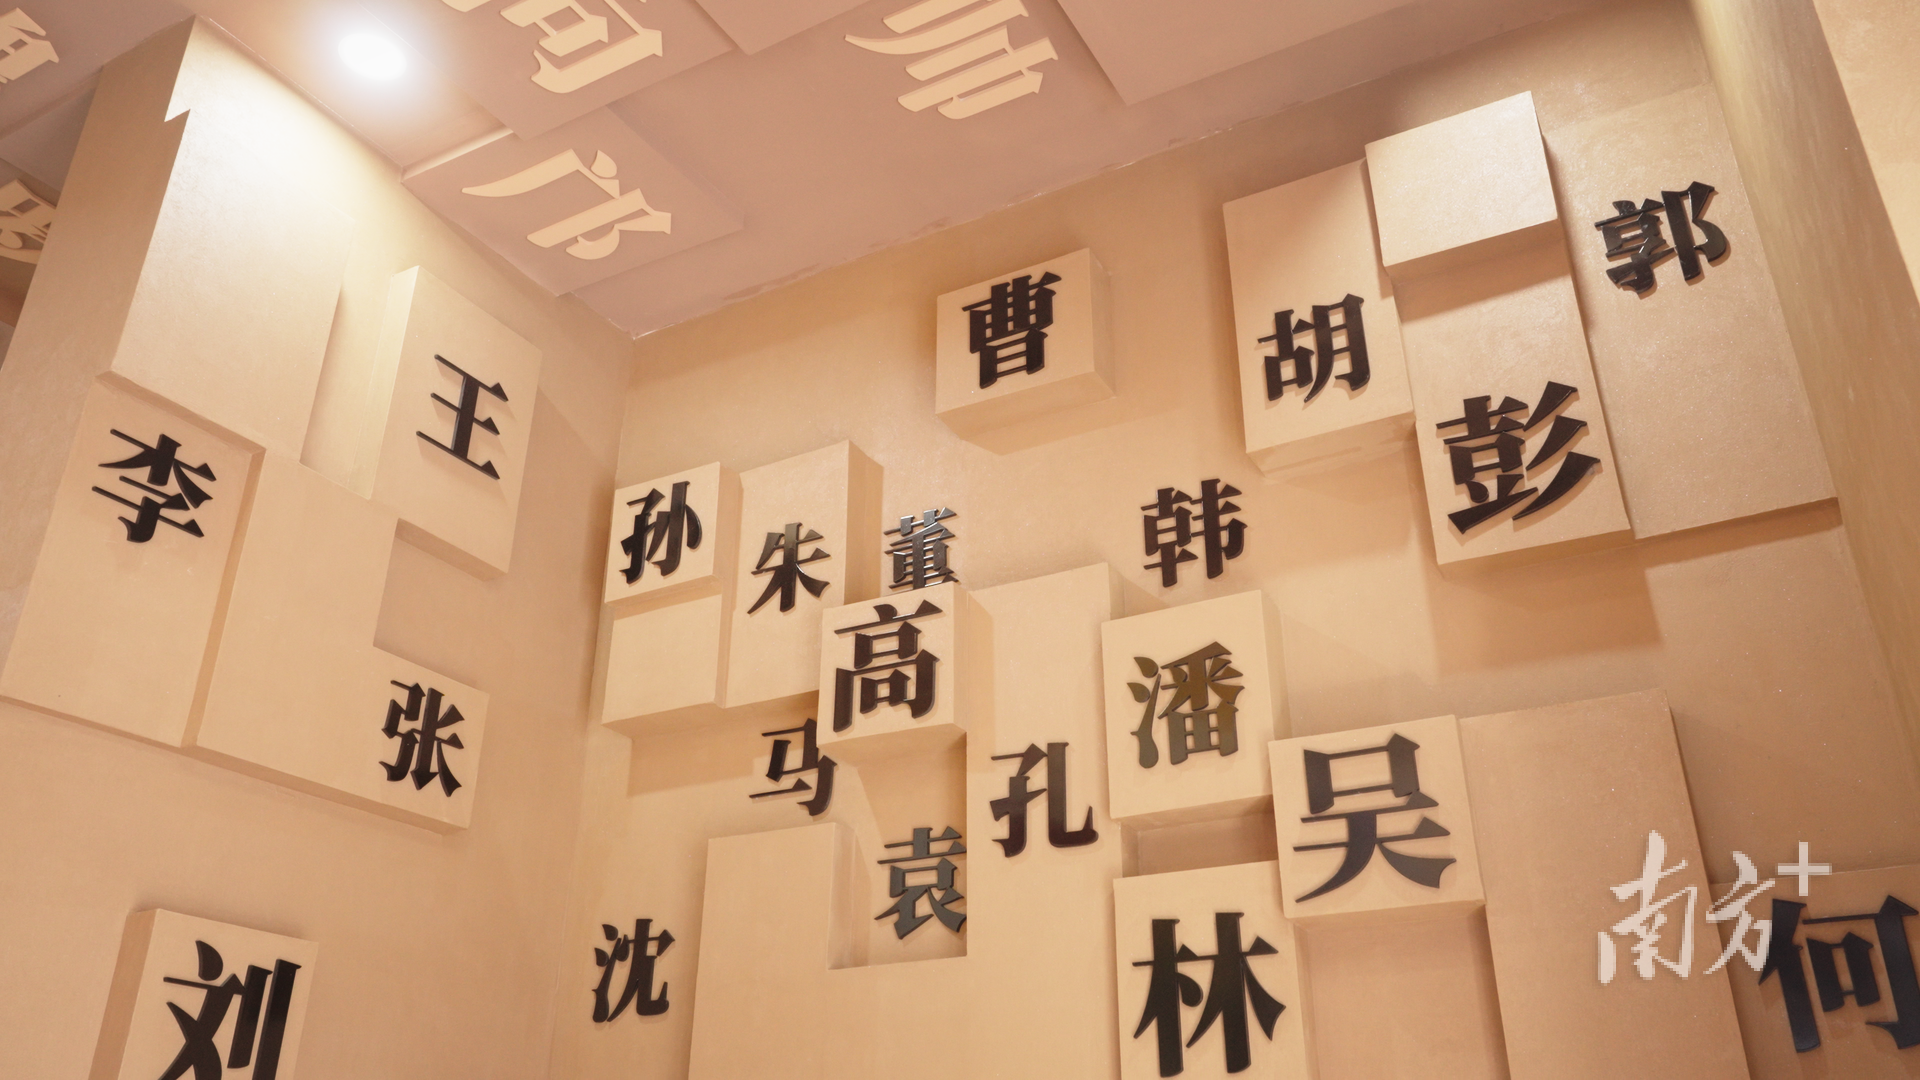 帅
邝
郭
曹
胡
王
彭
李
孙
朱
董
韩
高
潘
张
马
孔
吴
袁
沈
林
何
刘
南方+